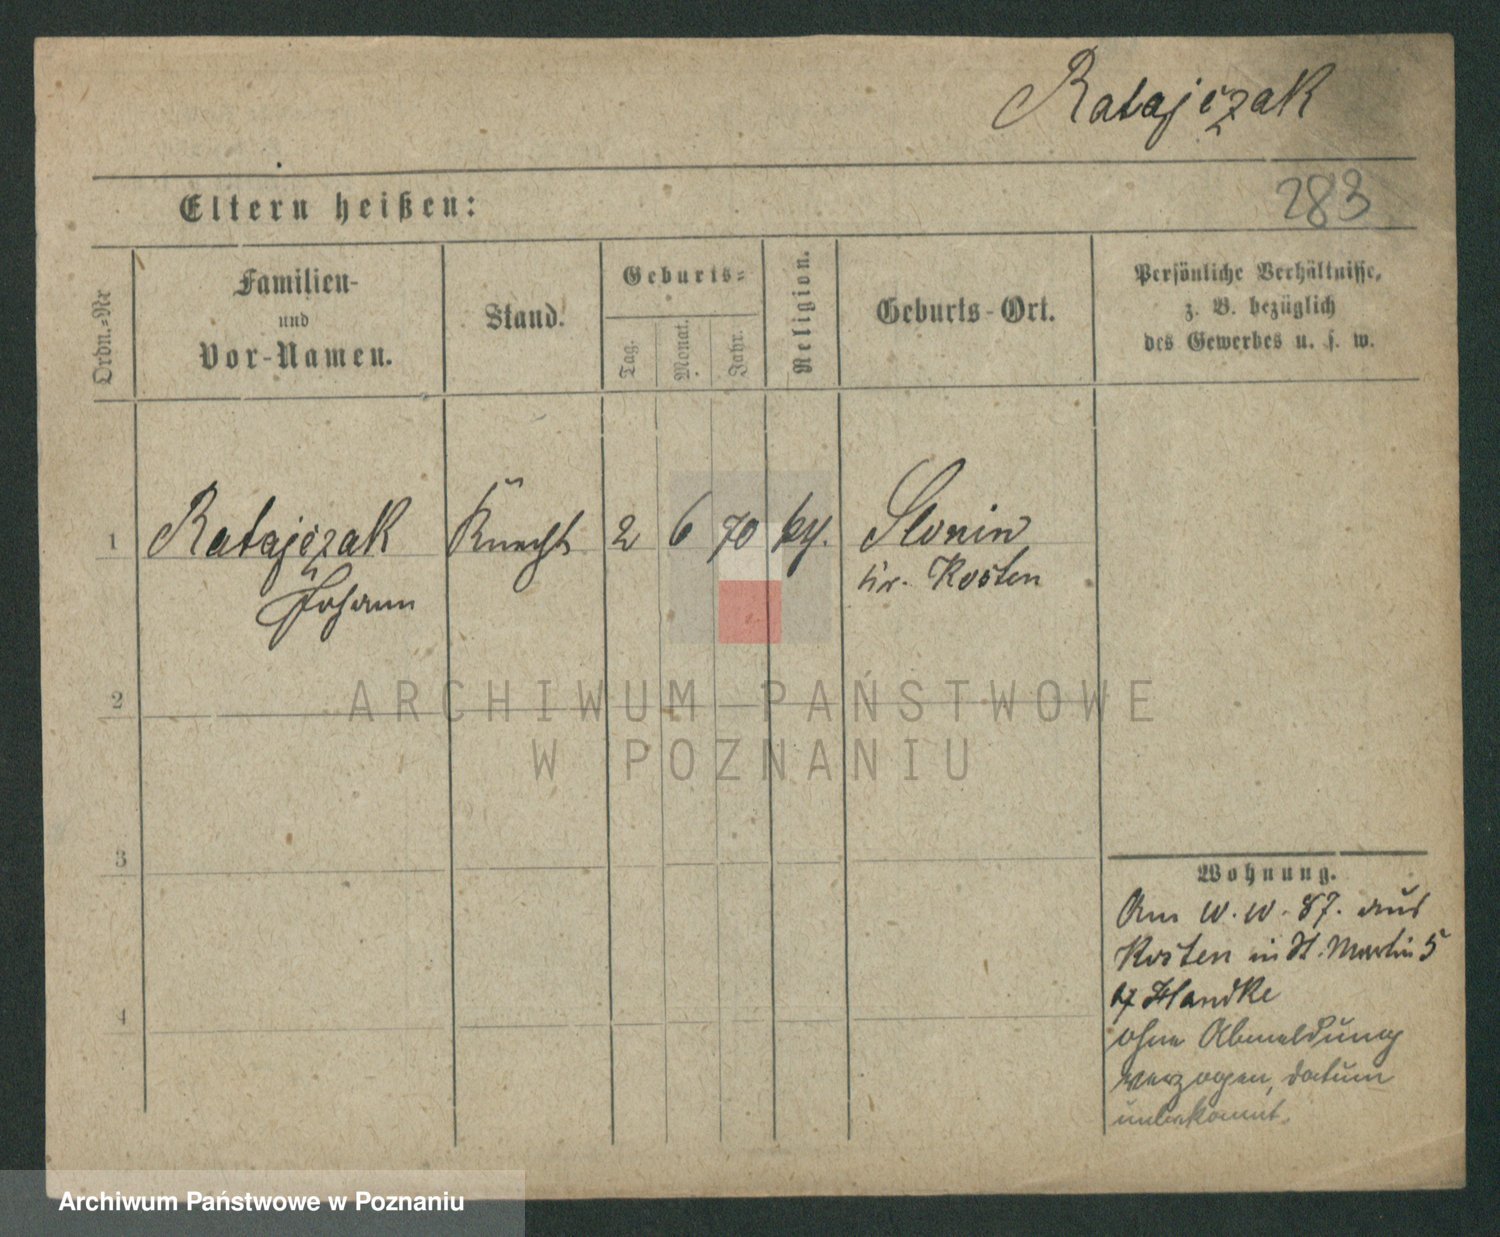 Ratajczak
283
Eltern heißen:
Ordn.=Nr
Familien-
und
Vor-Namen.
Stand.
Geburts=
Tag.
Monat.
Jahr.
Religion.
Geburts-Ort.
Persönliche Verhältnisse,
z. B. bezüglich
des Gewerbes u. s. w.
1 Ratajczak Knecht 2 6 70 Slonin
Johann
Kr. Kosten
2
3
4
Wohnung.
Am 87. aus
Kosten in St. Martin 5
Handke
ohne Abmeldung
verzogen, datum
unbekannt.
ARCHIWUM PAŃSTWOWE
W POZNANIU
Archiwum Państwowe w Poznaniu